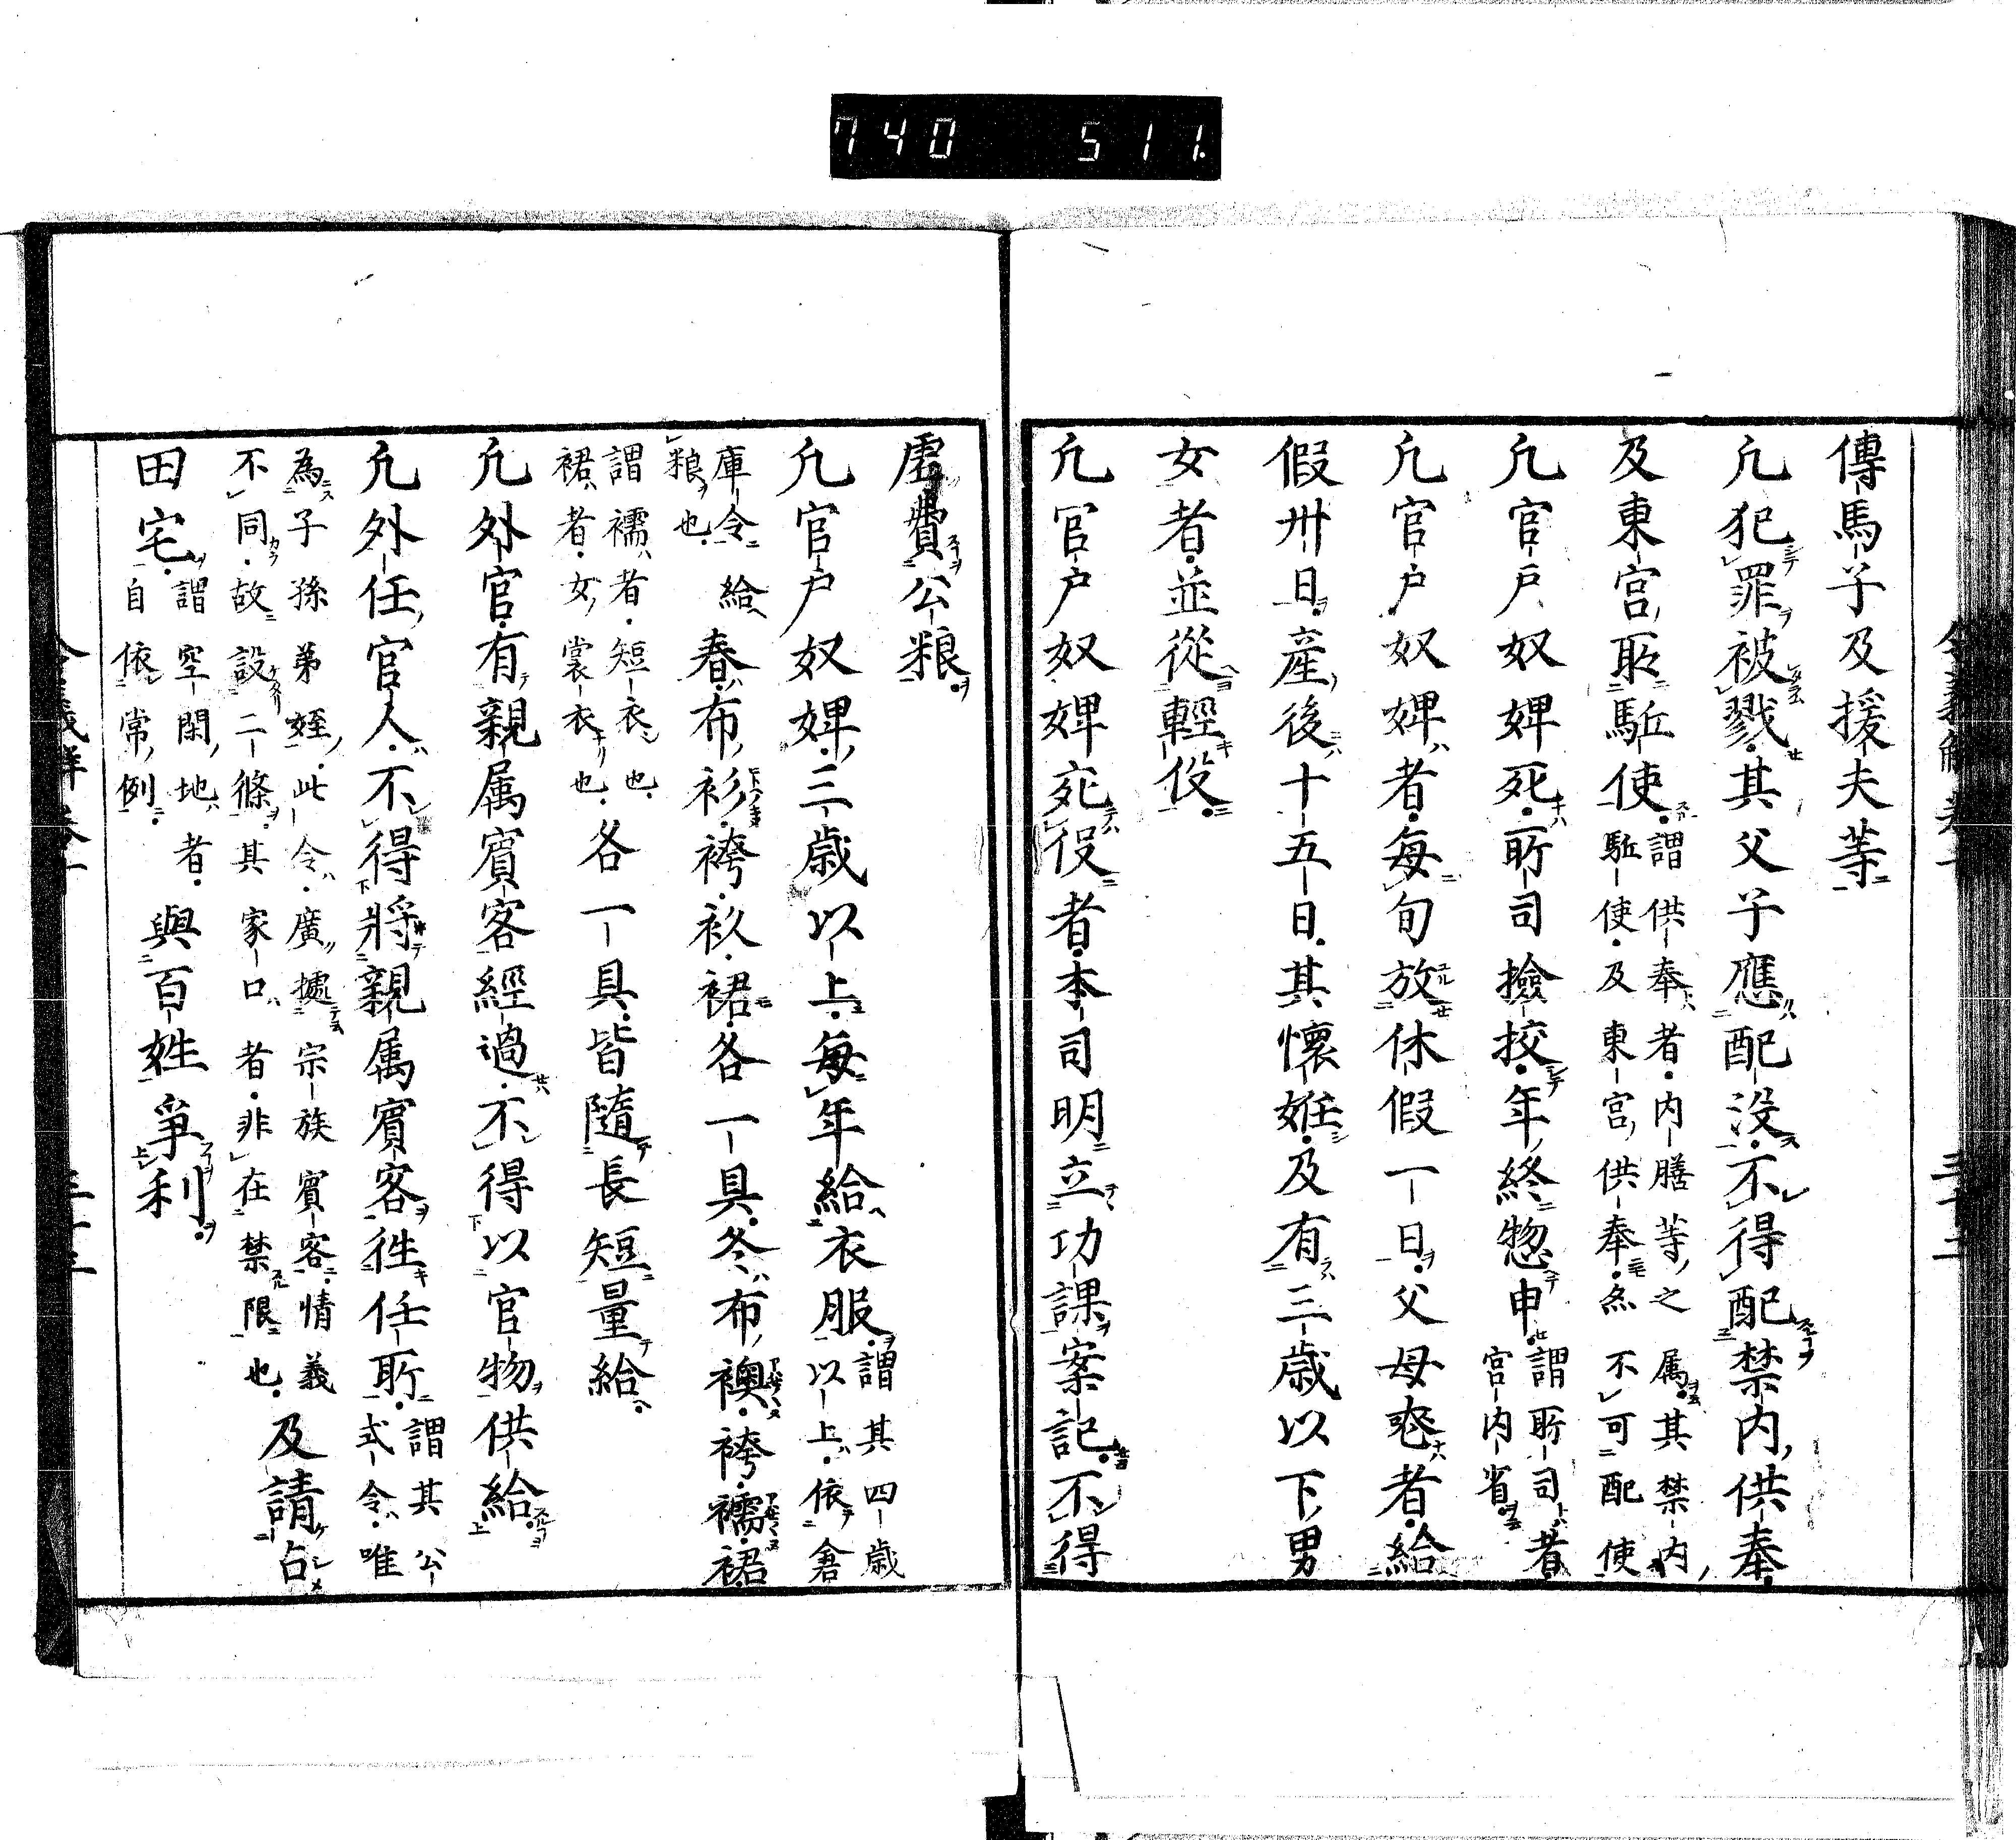 740 511.
傳馬子及援夫等
凡犯罪被戮其父子應配没不得配禁内供奉
及東宮所駈使謂供奉者内膳等之属其禁内
駈使及東宮供奉亦不可配使
凡官戸奴婢死所司撿挍年終惣申謂所司者
宮内省
凡官戸奴婢者毎旬放休假一日父母喪者給
假卅日産後十五日其懷姙及有三歳以下男
女者並從輕役
凡官戸奴婢死役者本司明立功課案記不得
虚費公粮
凡官戸奴婢三歳以上毎年給衣服謂其四歳
以上依倉
庫令給
粮也春布衫袴衫裙各一具冬布襖袴襦裙
謂襦者短衣也
裙者女裳衣也各一具皆隨長短量給
凡外官有親属賓客經過不得以官物供給
凡外任官人不得將親属賓客徃任所謂其公
式令唯
為子孫弟姪此令廣據宗族賓客情義
不同故設二條其家口者非在禁限也及請占
田宅謂空閑地者
自依常例與百姓爭利